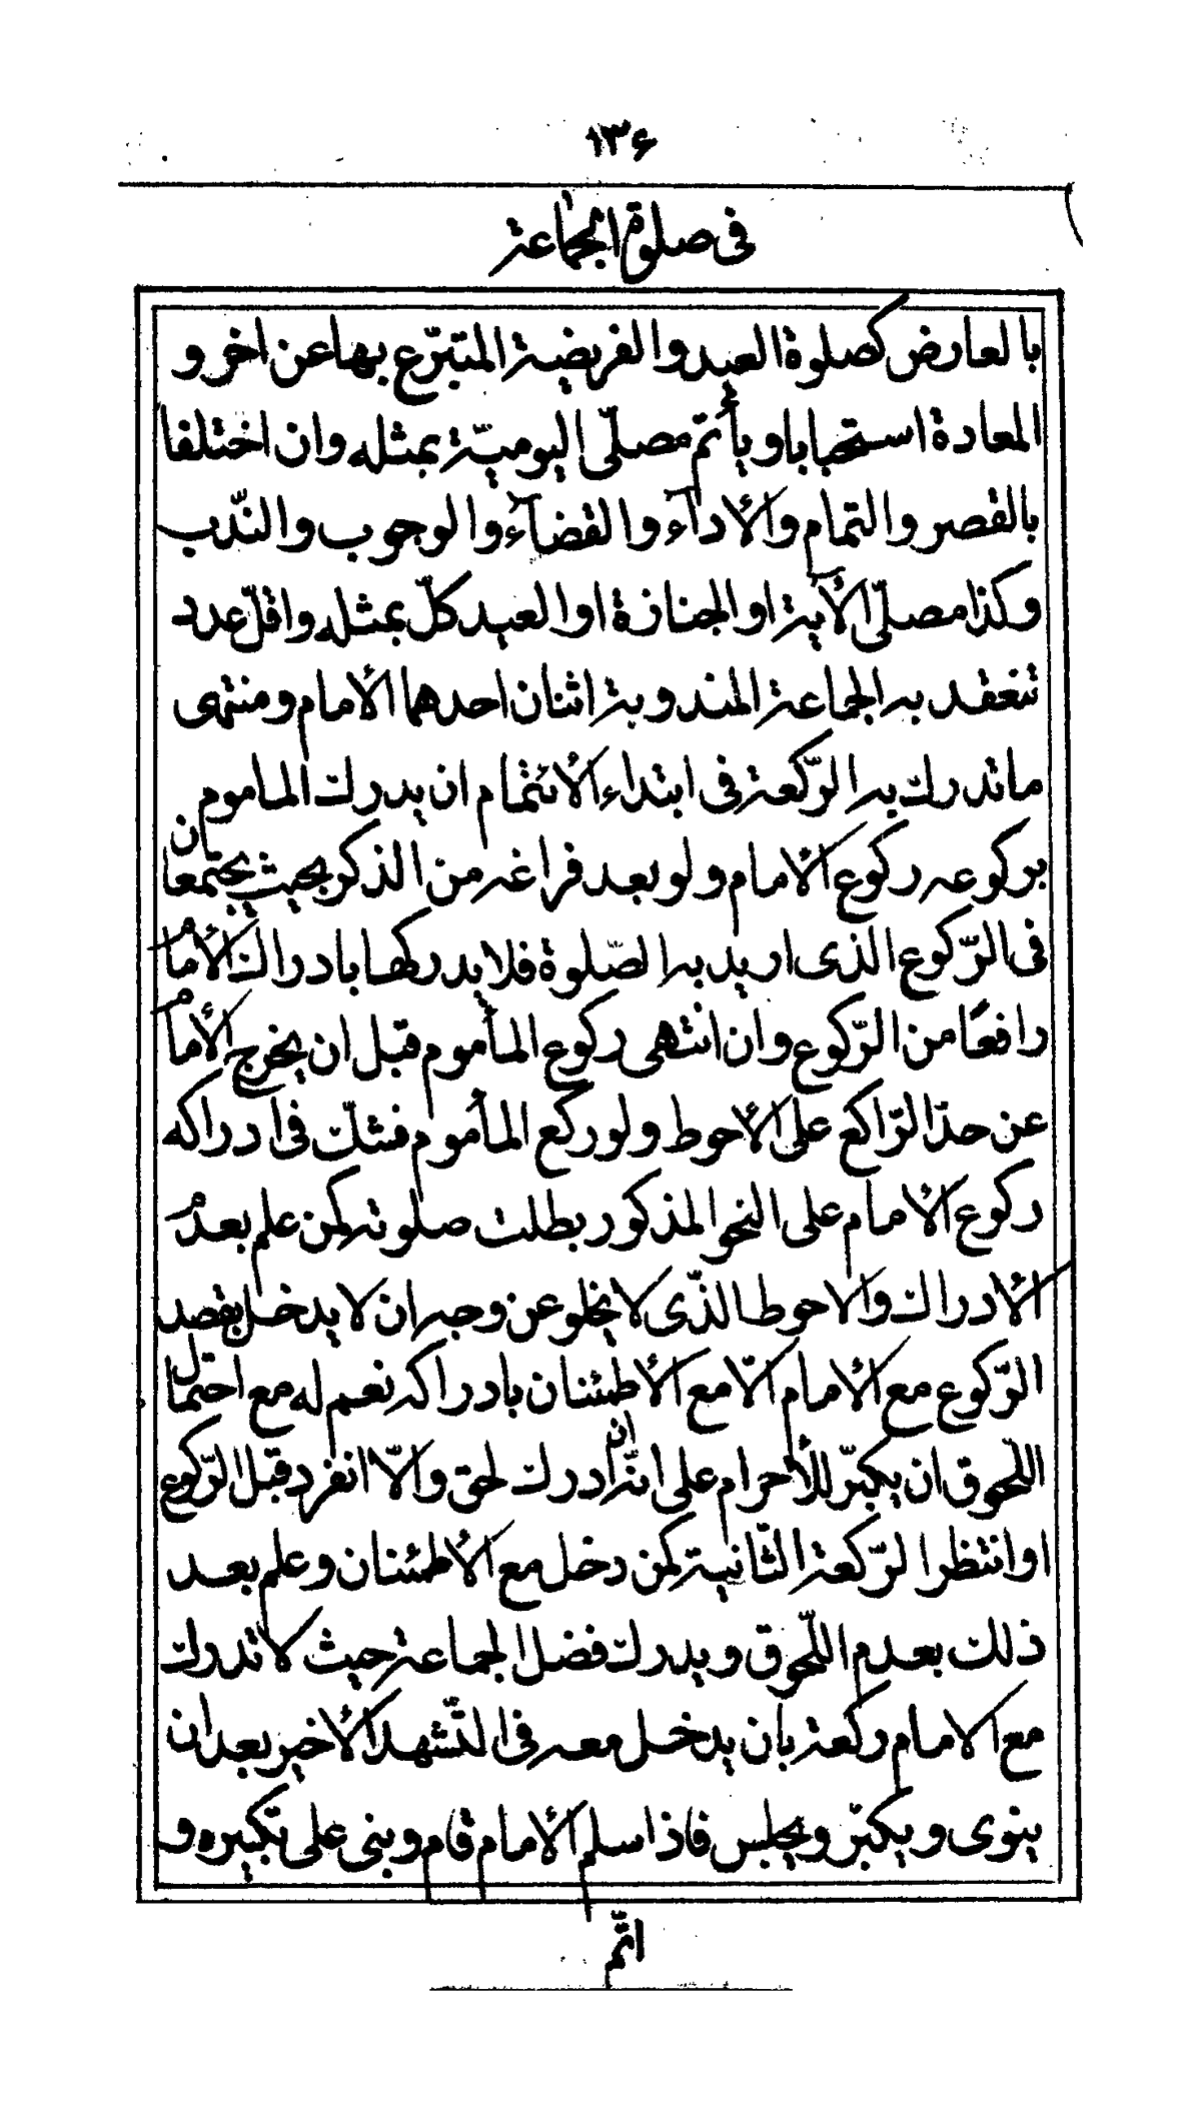 ۱۳۶
فی صلوة الجماعة
بالعارض كصلوة العيد والفريضة المتبرّع بها عن اخر و
المعادة استحبابا ويأتمّ مصلّى اليوميّة بمثله وان اختلفا
بالقصر والتمام والأدآء والقضآء والوجوب والنّدب
وكذا مصلّى الآية او الجنازة او العيد كلّ بمثله واقلّ عدد
تنعقد به الجماعة المندوبة اثنان احدهما الأمام ومنتهى
ما تدرك به الرّكعة فى ابتداء الأئتمام ان يدرك الماموم
بركوعه ركوع الامام ولو بعد فراغه من الذكر بحيث يجتمعان
فى الرّكوع الذى اريد به الصّلوة فلا يدركها بادراك الأمام
رافعًا من الرّكوع وان انتهى ركوع المأموم قبل ان يخرج الأمام
عن حدّ الرّاكع على الأحوط ولو ركع المأموم فشكّ فى ادراكه
ركوع الأمام على النحو المذكور بطلت صلوته كمن علم بعدم
الأدراك والاحوط الذّى لا يخلو عن وجه ان لا يدخل بقصد
الرّكوع مع الأمام الّا مع الأطمئنان بادراكه نعم له مع احتمال
اللّحوق ان يكبّر للأحرام على انّه ان ادرك لحق والّا انفرد قبل الرّكوع
او انتظر الرّكعة الثّانية كمن دخل مع الأطمئنان وعلم بعد
ذلك بعدم اللّحوق ويدرك فضل الجماعة حيث لا تدرك
مع الامام ركعة بان يدخل معه فى التّشهد الأخير بعد ان
ينوى ويكبّر ويجلس فاذا سلم الأمام قام وبنى على تكبيره و
اتمّ